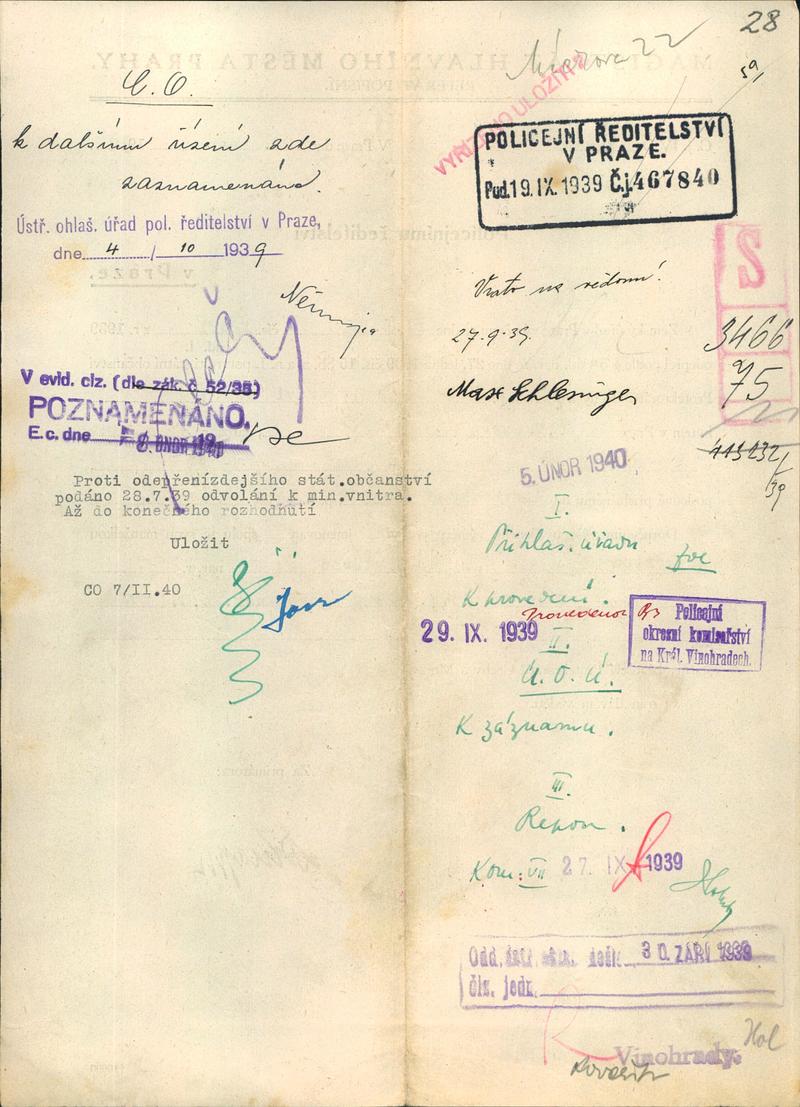 28
VYŘÍZENO ULOŽITI
POLICEJNÍ ŘEDITELSTVÍ
V PRAZE.
Pod.19.IX.1939 Č.j.467840
C. O.
k dalšímu řízení zde
zaznamenáno.
Ústř. ohlaš. úřad pol. ředitelství v Praze,
dne 4 / 10 1939
V evid. ciz. (dle zák. č 52/35)
POZNAMENÁNO.
E.c. dne 8. ÚNOR 1940
Proti odepřenízdejšího stát.občanství
podáno 28.7.39 odvolání k min.vnitra.
Až do konečného rozhodnutí
Uložit
CO 7/II.40
S
Vzato na vědomí!
27.-9.-39.
Max Schlesinger
3466
75
5. ÚNOR 1940
I.
Přihlaš. úřadu
K provedení.
Provedeno
29. IX. 1939
Policejní
okresní komisařství
na Král. Vinohradech.
II.
Ú. O. Ú.
K záznamu.
III.
Repon.
Kom: VII 27. IX. 1939
30. ZÁŘÍ 1939
čís. jedn.
Vinohrady.
Hol